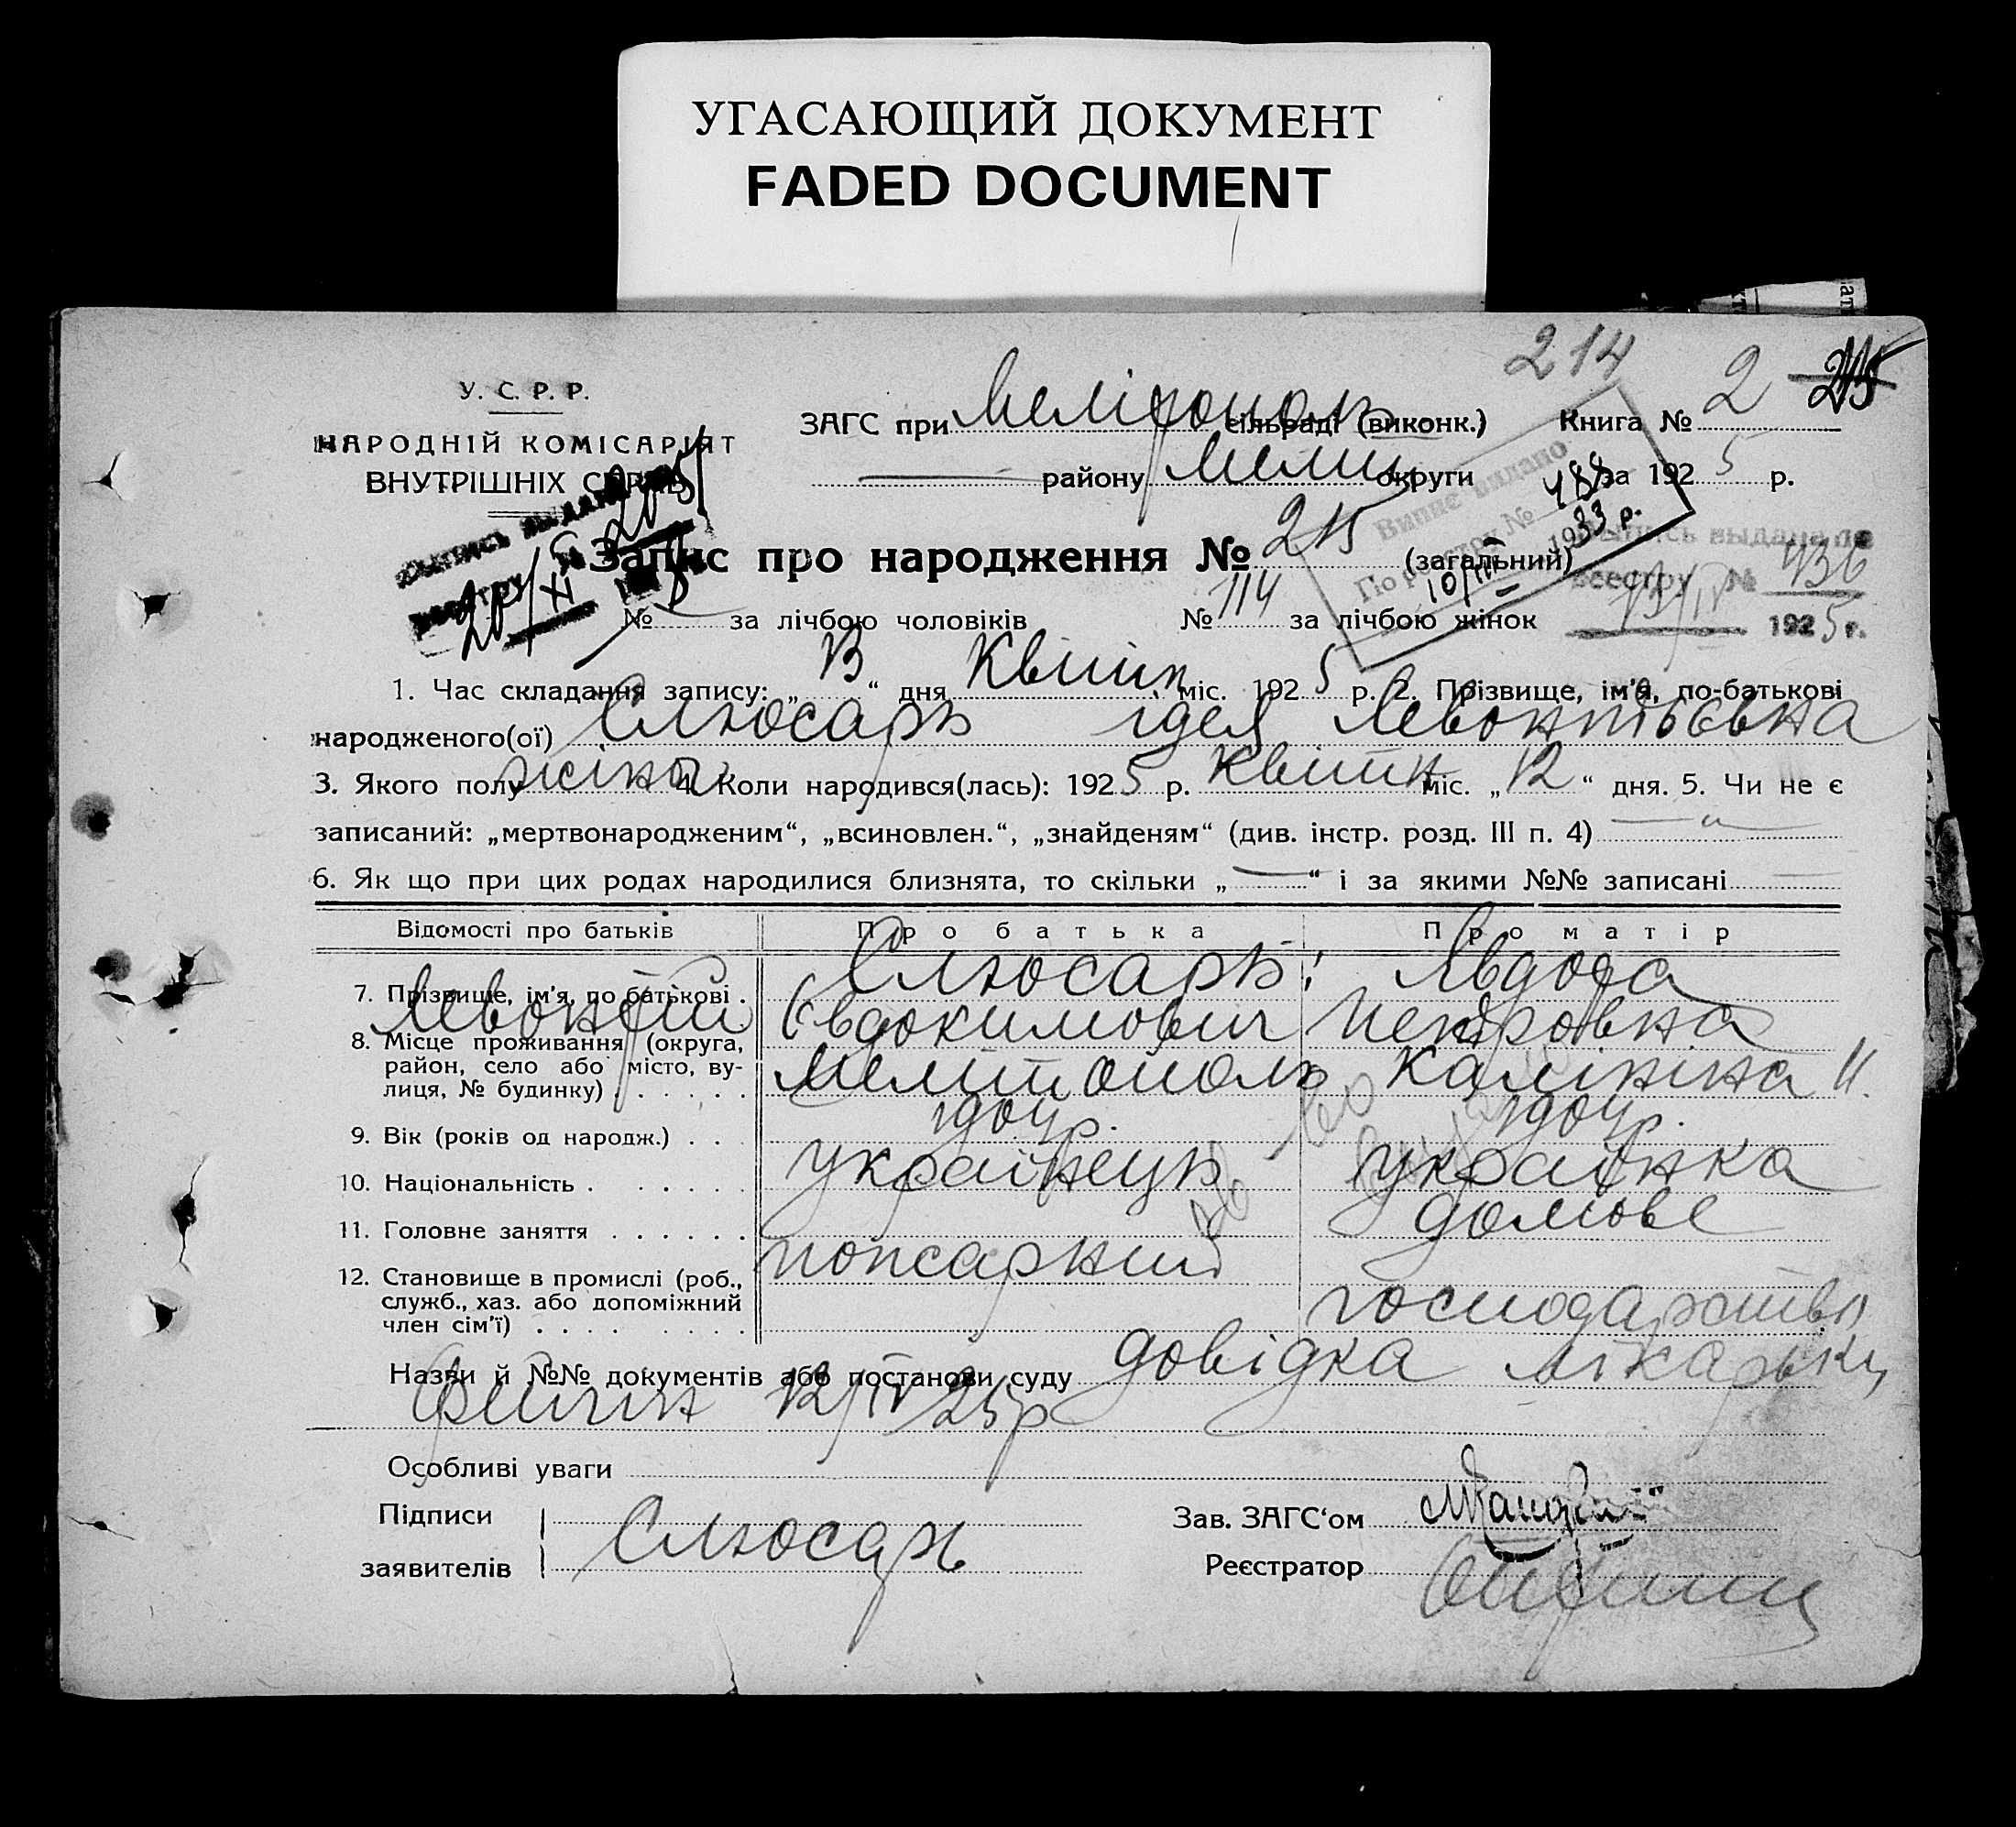 УГАСАЮЩИЙ ДОКУМЕНТ
FADED DOCUMENT
214
У. С. Р. Р.
НАРОДНІЙ КОМІСАРІЯТ
ВНУТРІШНІХ СПРАВ
ЗАГС при Мелітополь сільраді (виконк.) Книга № 2 215
району Меліт округи за 1925 р.
Випис видано
По реєстру № 488
10/III 1933 р.
Выпись выдана по
реестру № 436
13/IV 1925 г.
Выпись выдана по
реестру №
20/XI
Запис про народження № 215 (загальний)
№ за лічбою чоловіків № 114 за лічбою жінок
1. Час складання запису: „13“ дня Квітн міс. 1925 р. 2. Прізвище, ім'я, по-батькові
народженого(ої) Слюсарь Ідея Левонтьєвна
3. Якого полу жіноч 4. Коли народився(лась): 1925 р. Квітн міс. „12“ дня. 5. Чи не є
записаний: „мертвонародженим“, „всиновлен.“, „знайденям“ (див. інстр. розд. III п. 4)
6. Як що при цих родах народилися близнята, то скільки „—“ і за якими №№ записані —
Відомості про батьків Про батька Про матір
7. Прізвище, ім'я, по батькові . Слюсарь Явдоха
Левонтій Євдокимович Петровна
8. Місце проживання (округа,
район, село або місто, вулиця, № будинку) Мелітополь Калініна 11.
9. Вік (років од народж.) . . .
10. Національність . . . . . . українець українка
11. Головне заняття . . . . . . пожарний домове
12. Становище в промислі (роб.,
служб., хаз. або допоміжний
член сім'ї) . . . . господарство
Назви й №№ документів або постанови суду довідка лікарьки
12/IV 25р
Особливі уваги
Підписи
заявителів Слюсарь
Зав. ЗАГС‘ом
Реєстратор